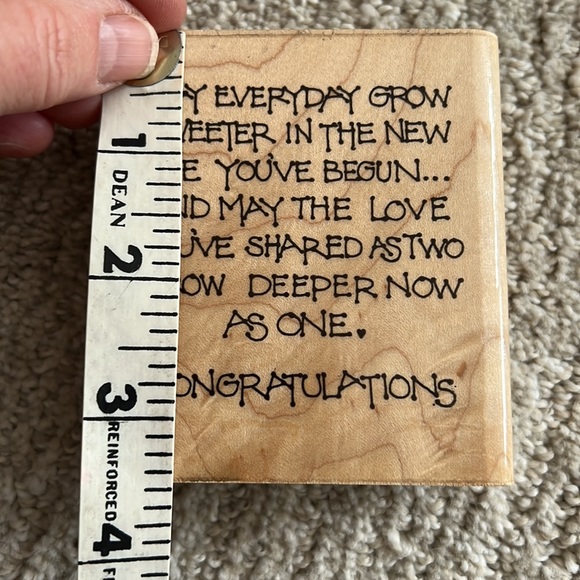 Y EVERYDAY GROW
WEETER IN THE NEW
E YOU'VE BEGUN...
ND MAY THE LOVE
U'VE SHARED AS TWO
OW DEEPER NOW
AS ONE.
ONGRATULATIONS
1
DEAN
2
3
REINFORCED
4